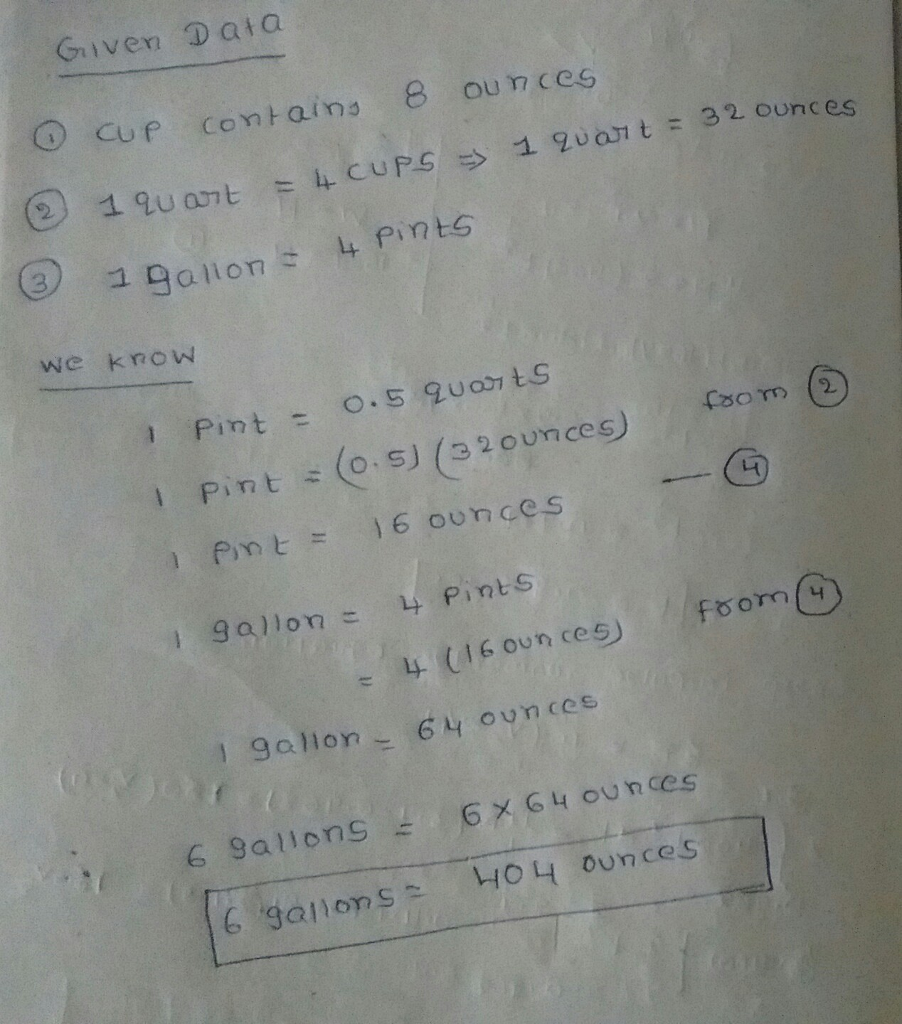 Given Data
① cup contains 8 ounces
② 1 quart = 4 cups ⇒ 1 quart = 32 ounces
③ 1 gallon = 4 pints
we know
1 pint = 0.5 quarts
1 pint = (0.5) (32 ounces) from ②
1 pint = 16 ounces — ④
1 gallon = 4 pints
= 4 (16 ounces) from ④
1 gallon = 64 ounces
6 gallons = 6 × 64 ounces
6 gallons = 404 ounces